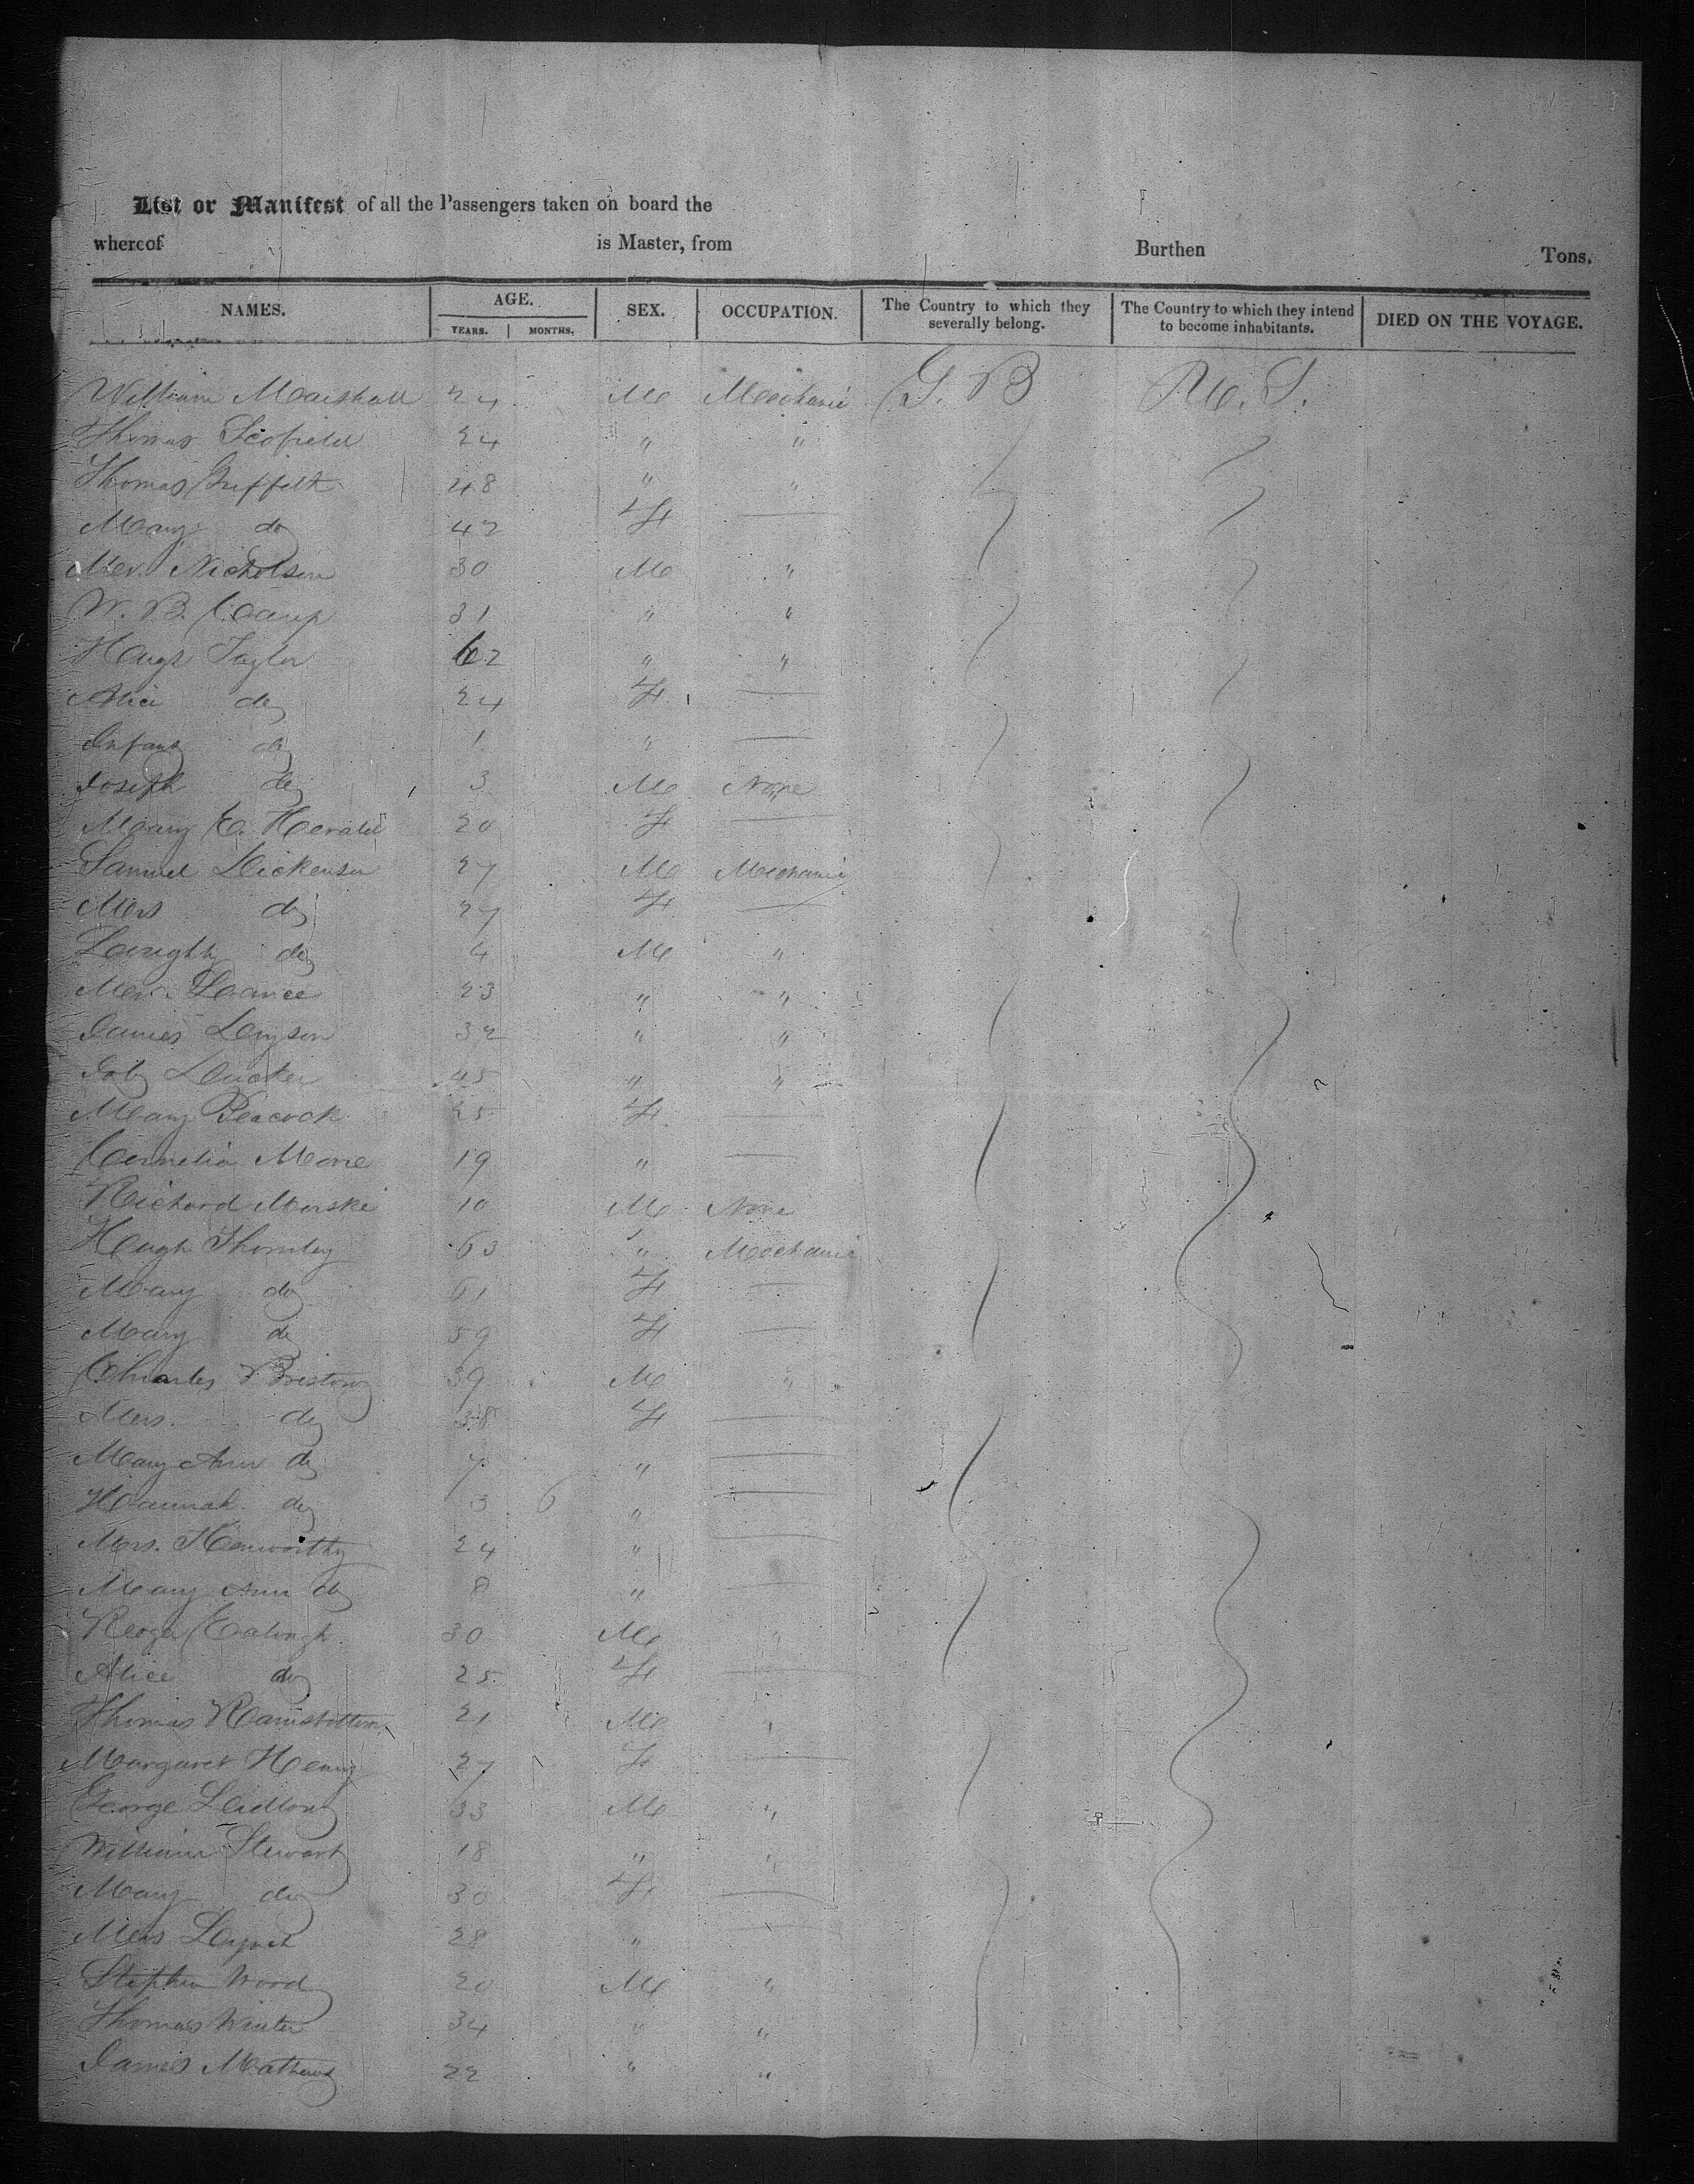 List or Manifest of all the Passengers taken on board the
whereof is Master, from Burthen Tons.
NAMES. AGE. SEX. OCCUPATION. The Country to which they severally belong. The Country to which they intend to become inhabitants. DIED ON THE VOYAGE.
YEARS. MONTHS.
William Marshall 24 M Mechanic G. B U. S.
Thomas Scofield 24 " "
Thomas Griffith 48 " "
Mary do 42 F
Nicholson 30 M "
W. B. Camp 31 " "
Hugh Taylor 62 " "
Alice do 24 F
Infant do 1 "
Joseph do 3 M None
Mary E. Herald 20 F
Samuel Dickenson 27 M Mechanic
Mrs do 27 F
do 4 M "
23 " "
James 32 " "
45 " "
Mary Peacock 25 F
Cornelia 19 "
Richard 10 M None
Hugh Thornley 63 " Mechanic
Mary do 61 F
Mary do 59 F
Charles Bristow 39 M "
Mrs. do 38 F
Mary Ann do 7 "
Hannah do 3 6 "
Mrs. Henworthy 24 "
Mary Ann do 8 "
Roger 30 M "
Alice do 25 F
Thomas Ramsbottom 21 M "
Margaret Henry 27 F
George 33 M "
William Stewart 18 " "
Mary do 30 F
Mrs Lynch 28 "
Stephen Wood 20 M "
Thomas Winter 34 " "
James Mathews 22 " "